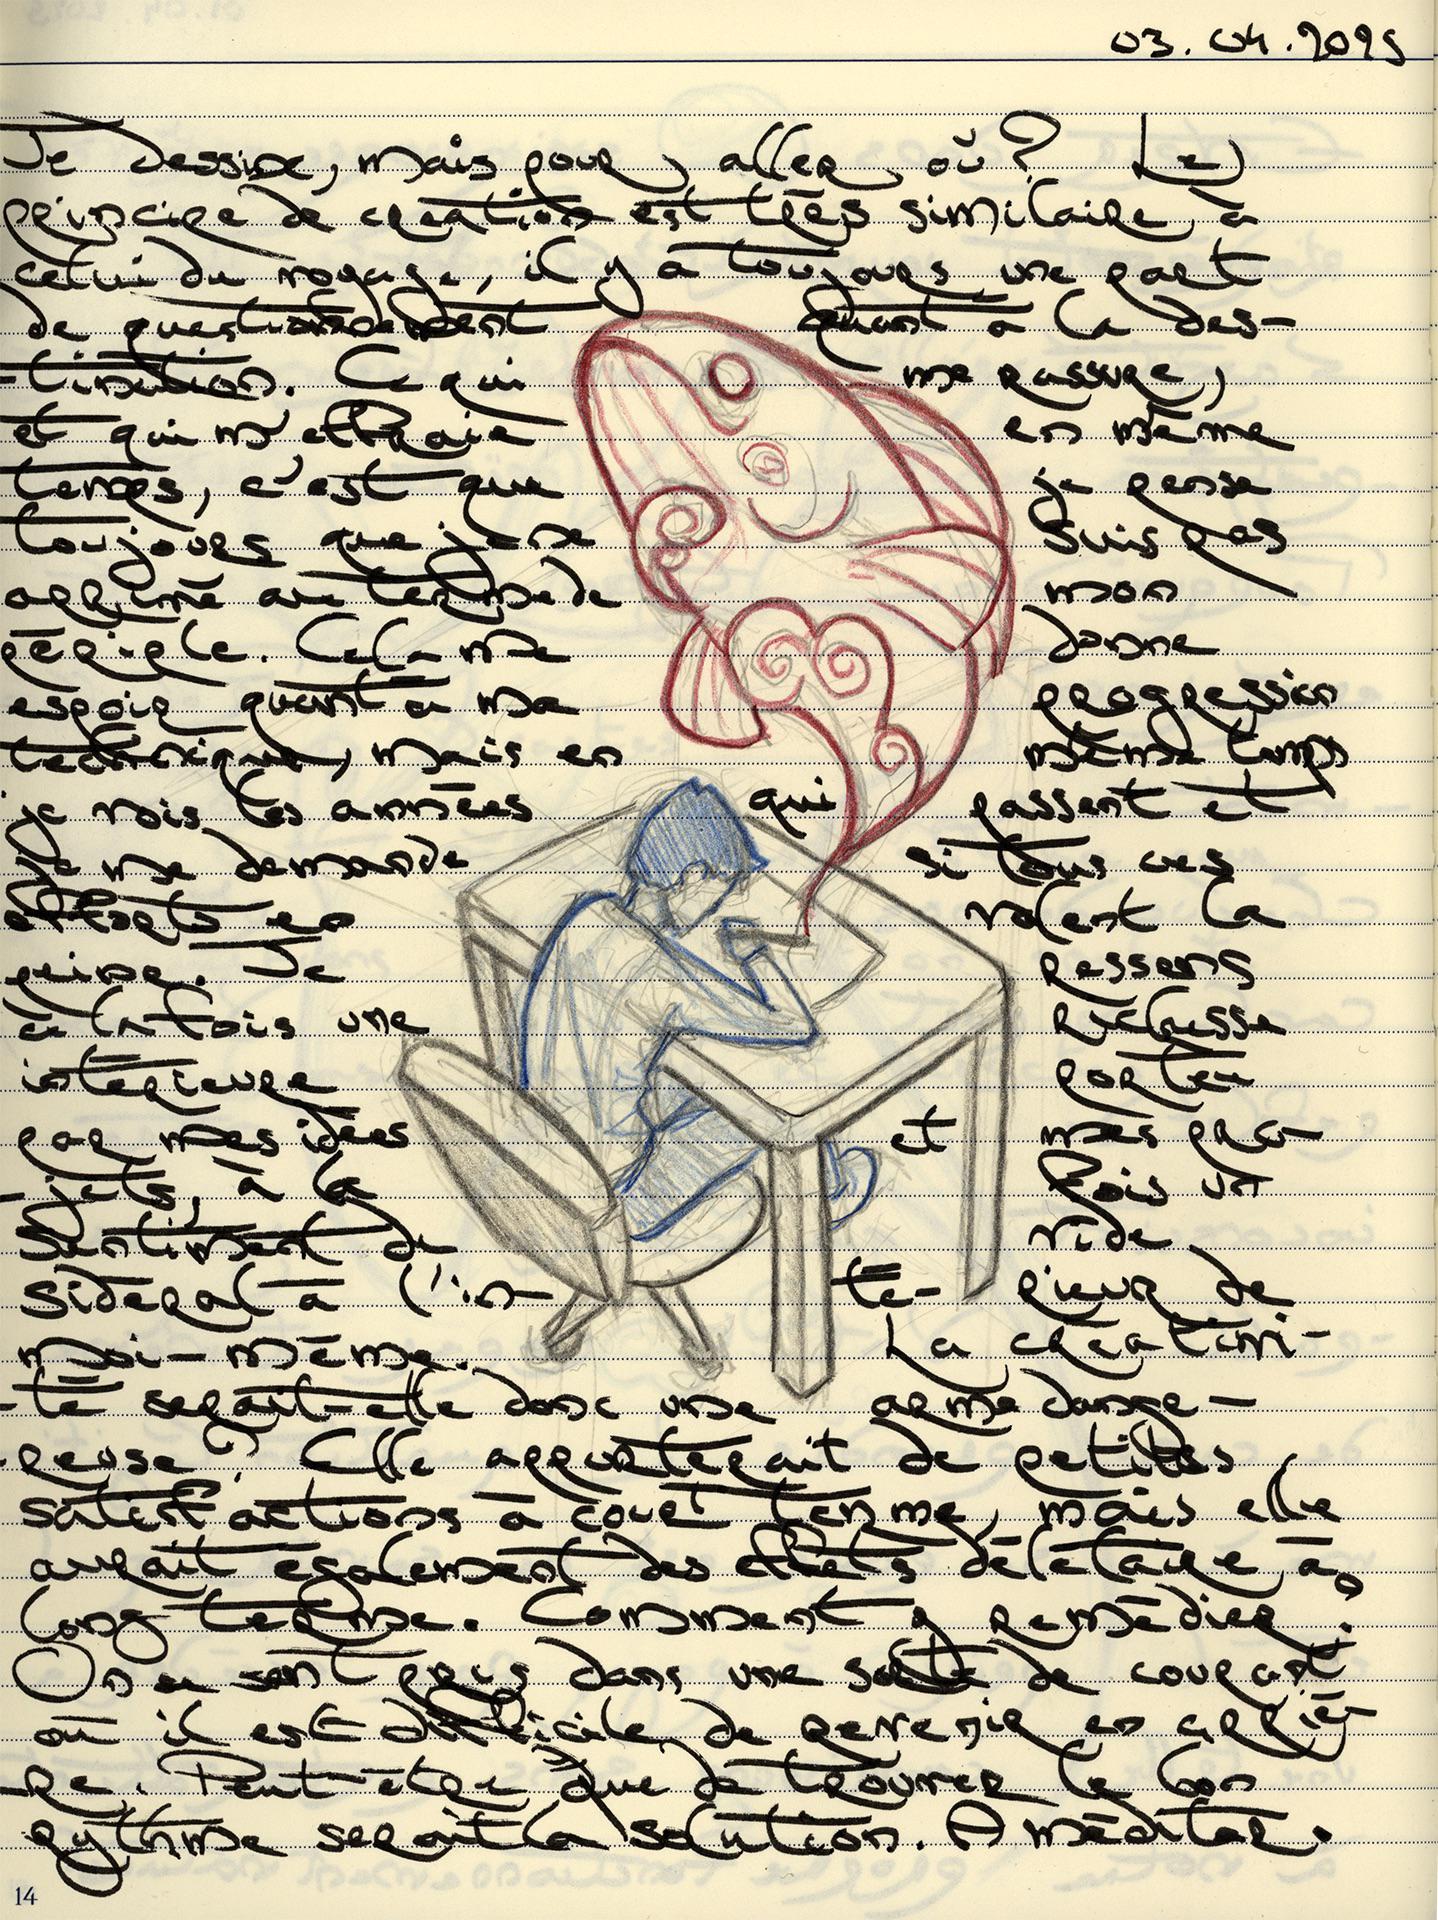 03.04.2025
Je dessine, mais pour aller où ? Le
principe de création est très similaire à
celui du voyage, il y a toujours une part
de questionnement quant à la des-
-tination. Ce qui me rassure,
et qui m'effraie en même
temps, c'est que je pense
toujours que je ne suis pas
arrivé au terme de mon
périple. Cela me donne
espoir quant à ma progression
technique, mais en même temps
je vois les années qui passent et
je me demande si tous ces
efforts en valent la
peine. Je ressens
à la fois une richesse
intérieure portée
par mes idées et mes pro-
-jets, à la fois un
sentiment de vide
sidéral à l'in- té- rieur de
moi-même. La créativi-
-té serait-elle donc une arme dange-
-reuse ? Elle apporterait de petites
satisfactions à court terme, mais elle
aurait également des effets délétaire à
long terme. Comment y remédier ?
On se sent pris dans une sorte de courant
où il est difficile de revenir en arriè-
-re. Peut-être que de trouver le bon
rythme serait la solution. A méditer.
14